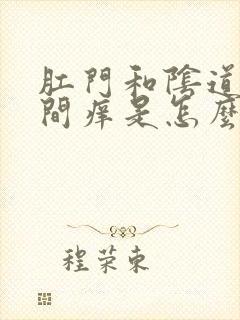 肛門和陰道
間痒是怎麼
程荣東